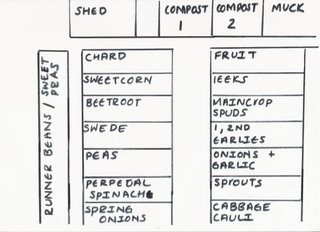 SHED
COMPOST
1
COMPOST
2
MUCK
RUNNER BEANS / SWEET
PEAS
CHARD
SWEETCORN
BEETROOT
SWEDE
PEAS
PERPEDAL
SPINACH
SPRING
ONIONS
FRUIT
LEEKS
MAINCROP
SPUDS
1, 2ND
EARLIES
ONIONS +
GARLIC
SPROUTS
CABBAGE
CAULI